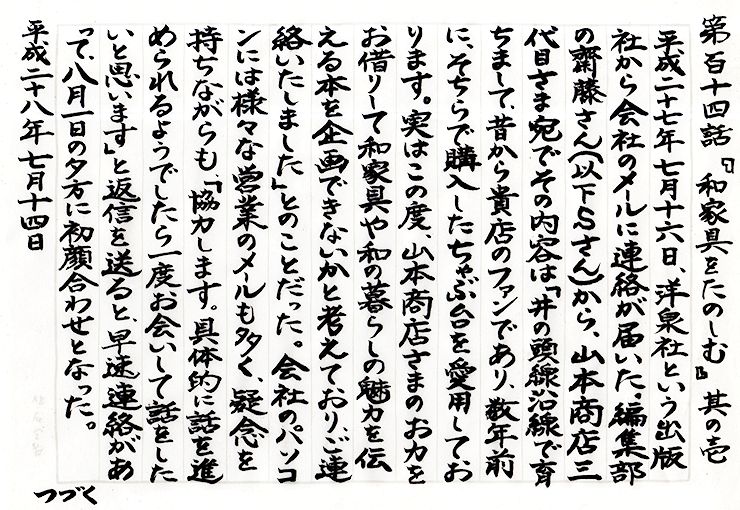 第百十四話『和家具をたのしむ』其の壱
平成二十七年七月十六日、洋泉社という出版
社から会社のメールに連絡が届いた。編集部
の齋藤さん(以下Sさん)から、山本商店三
代目さま宛でその内容は「井の頭線沿線で育
ちまして、昔から貴店のファンであり、数年前
に、そちらで購入したちゃぶ台を愛用してお
ります。実はこの度、山本商店さまのお力を
お借りして和家具や和の暮らしの魅力を伝
える本を企画できないかと考えており、ご連
絡いたしました」とのことだった。会社のパソコ
ンには様々な営業のメールも多く、疑念を
持ちながらも、「協力します。具体的に話を進
められるようでしたら一度お会いして話をした
いと思います」と返信を送ると、早速連絡があ
って、八月一日の夕方に初顔合わせとなった。
平成二十八年七月十四日
つづく